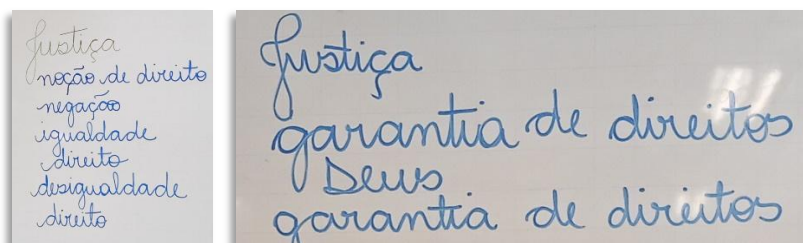 Justiça
noção de direito
negação
igualdade
direito
desigualdade
direito
Justiça
garantia de direitos
Deus
garantia de direitos